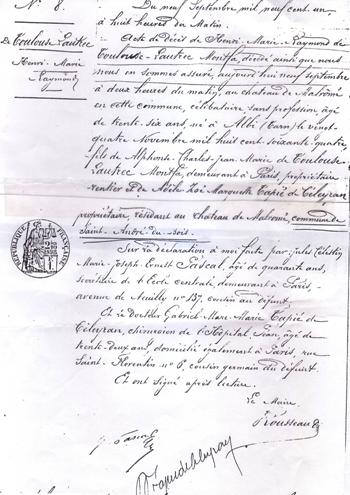 N° 8.
De Toulouse-Lautrec
Henri-Marie
Raymond
Du neuf Septembre mil neuf cent un,
à huit heures du Matin.
Acte de décès de Henri-Marie-Raymond de
Toulouse-Lautrec Monfa, décédé ainsi que nous
nous en sommes assuré, aujourd'hui neuf septembre
à deux heures du matin, au château de Malromé
en cette commune, célibataire sans profession, âgé
de trente-six ans, né à Albi (Tarn) le vingt-
quatre Novembre mil huit cent soixante-quatre,
fils de Alphonse-Charles-Jean Marie de Toulouse-
Lautrec Monfa, demeurant à Paris, propriétaire
rentier et de Adèle Zoé Marquette Tapié de Céleyran
propriétaire résidant au château de Malromé, commune de
Saint-André-du-Bois.
Sur la déclaration à moi faite par: Jules Célestin
Marie-Joseph Ernest Pascal, âgé de quarante ans,
secrétaire de l'école centrale, demeurant à Paris-
avenue de Neuilly n° 137, cousin du défunt
Et Le Docteur Gabriel-Marc-Marie Tapié de
Céleyran, chirurgien de l'Hôpital Péan, âgé de
trente-deux ans domicilié également à Paris, rue
Saint-Florentin n° 6, cousin germain du défunt.
Et ont signé après lecture.
Le Maire,
Rousseau
J. Pascal
Tapié de Céleyran
RÉPUBLIQUE FRANÇAISE